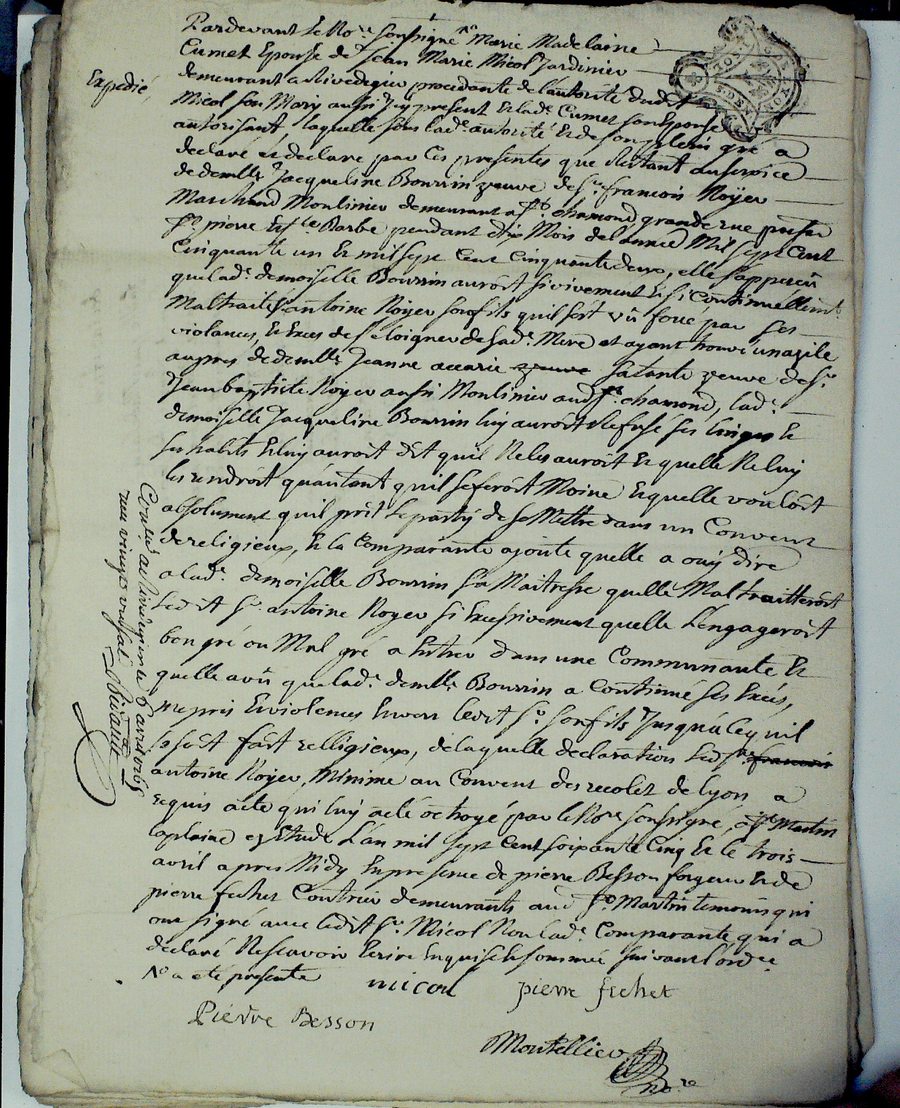 Pardevant le No.re soussigné Marie Madelaine
Cumet Epouse de Jean Marie Micol Jardinier
Expedié
demeurant a Rivedegier procedante de l'autorité dud.t
Micol son Mary aussi icy present et lad.e Cumet son Epouse
autorisant laquelle sous lad.e autorité et de son plein gré a
declaré et declare par ces presentes que Estant au service
de demlle Jacqueline Bourrin veuve de s.r francois Royer
Marchand Moulinier demeurant a s.t chamond grande rue
s.t pierre et s.te Barbe pendant dix Mois de l'année Mil sept Cent
Cinquante un et mil sept Cent Cinquante deux, elle s'apperceu
que lad.e demoiselle Bourrin auroit si vivement et si Continuellem.t
Maltraité s.r antoine Royer son fils qu'il s'est vû foué par ses
violances, et Exces de s'Eloigner de sad.e Mere et ayant trouvé un azile
aupres de demlle Jeanne accarie sa tante veuve de s.r
Jean baptiste Royer aussi Moulinier aud s.t chamond, lad.e
demoiselle Jacqueline Bourrin luy auroit Refusé ses linges et
ses habits et luy auroit dit qu'il Ne les auroit et quelle Ne luy
les rendroit qu'autant qu'il se feroit Moine et quelle vouloit
absolument qu'il prit le party de se Mettre dans un Convent
de religieux, et la Comparante ajoute quelle a ouÿ dire
a lad.e demoiselle Bourrin sa Maitresse quelle Maltraitteroit
led.t s.r antoine Royer si Excessivement quelle L'engageroit
bon gré ou Mal gré a Entrer dans une Communauté et
quelle a vû que lad.e demlle Bourrin a Continué ses Excés,
Mepris et violences Envers led.t s.r son fils Jusqu'à ce qu'il
se soit fait relligieux, de laquelle declaration led s.r francois
antoine Royer, Minime au Convent des recolet de Lyon a
Requis acte qui luy a eté octroyé par le No.re soussigné, a s.t Martin
laplaine Etude L'an mil sept Cent soixante Cinq et le trois
avril apres Midy En presence de pierre Besson forgeur et de
pierre fechet Coutrier demeurants aud s.t Martin temoins qui
ont signé avec led.t s.r Micol Non lad.e Comparante qui a
declaré Ne scavoir Ecrire Enquise et sommée suivant l'ord.ce
No a eté presenté
micou pierre fechet
Pierre Besson
Montellier
no.re
Controllé a Rivedegier le 6 avril 1765